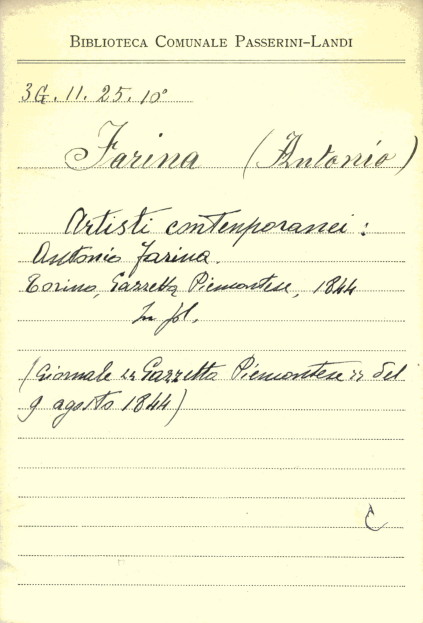 BIBLIOTECA COMUNALE PASSERINI-LANDI
3G. 11. 25. 10°
Farina (Antonio)
Artisti contemporanei:
Antonio Farina.
Torino, Gazzetta Piemontese, 1844
In fol.
(Giornale "Gazzetta Piemontese" del
9 agosto 1844)
C